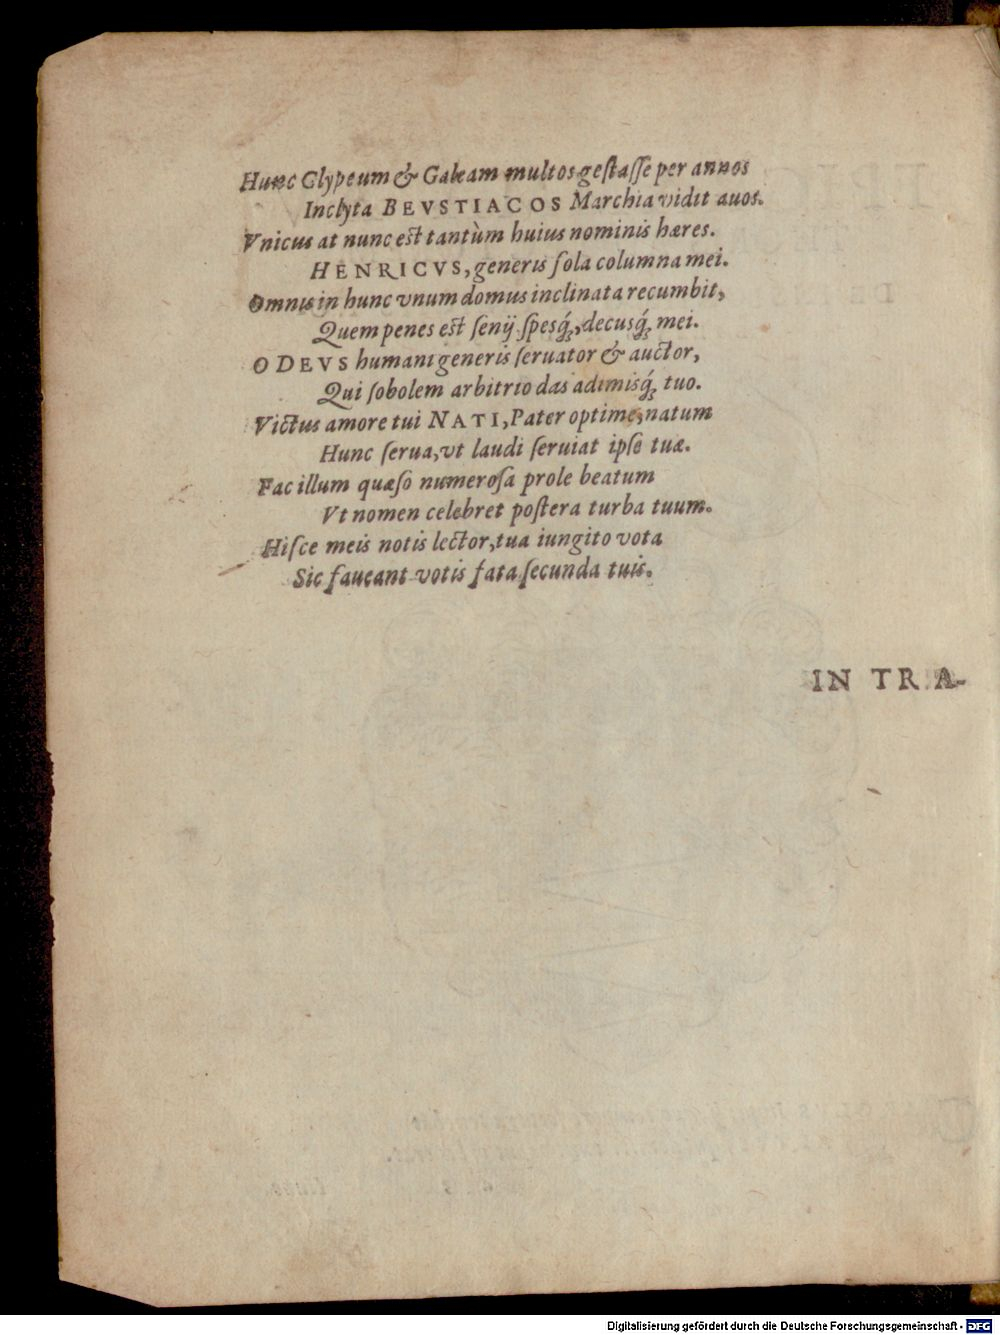 Hunc Clypeum & Galeam multos geſtaſſe per annos
Inclyta BEVSTIACOS Marchia vidit avos.
Vnicus at nunc eſt tantùm huius nominis hæres.
HENRICVS, generis ſola columna mei.
Omnis in hunc vnum domus inclinata recumbit,
Quem penes eſt ſenij ſpesq́ꝫ, decusq́ꝫ mei.
O DEVS humani generis ſeruator & auctor,
Qui ſobolem arbitrio das adimisq́ꝫ tuo.
Victus amore tui NATI, Pater optime, natum
Hunc ſerua, vt laudi ſeruiat ipſe tuæ.
Fac illum quæſo numeroſa prole beatum
Vt nomen celebret poſtera turba tuum.
Hiſce meis notis lector, tua iungito vota
Sic faueant votis fata ſecunda tuis.
IN TRA-
Digitalisierung gefördert durch die Deutsche Forschungsgemeinschaft - DFG